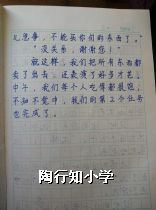 儿意事，不能要你们的东西了。”
“没关系，谢谢您！”
就这样，我们把所有东西都
卖了出去，还表演了好多才艺，
中午，我们每个人吃得都很饱，
不知不觉中，我们的第2个任务
也完成了。
陶行知小学